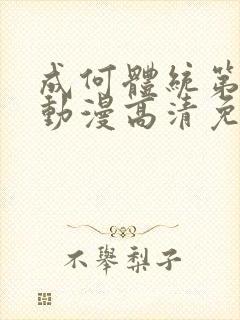 成何體統第
動漫高清免
不舉梨子